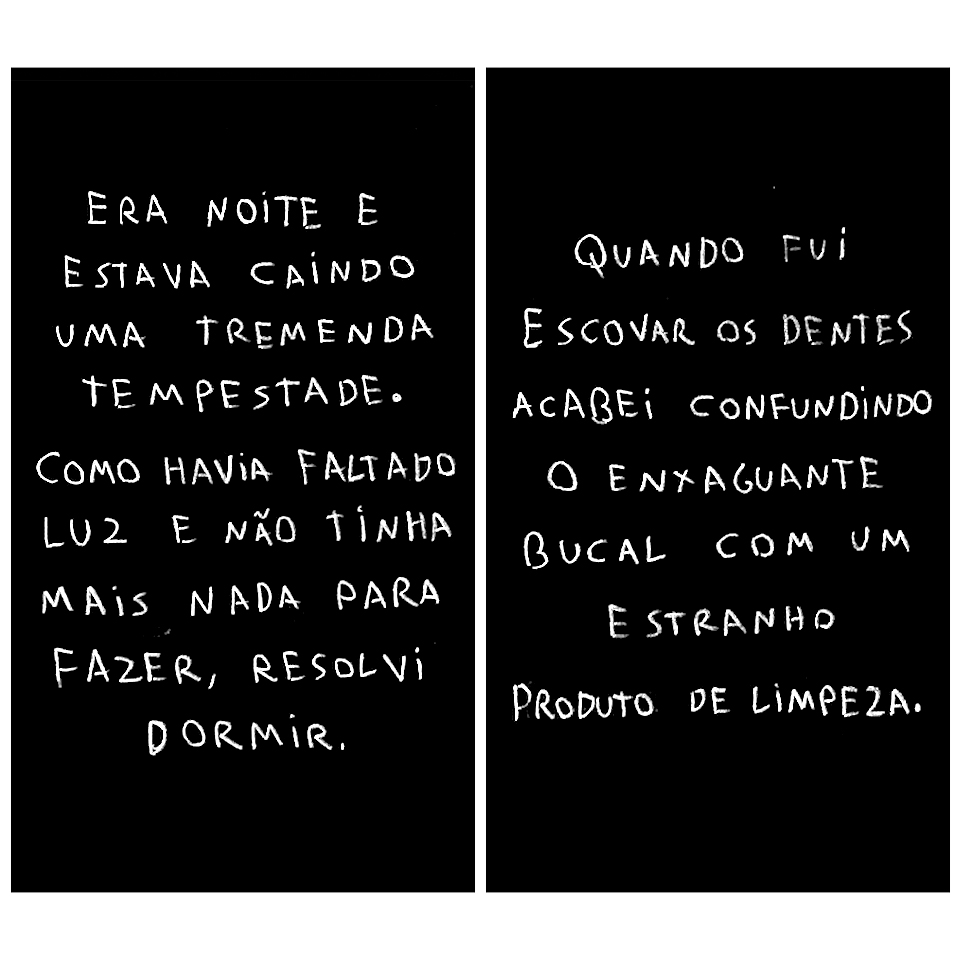 ERA NOITE E
ESTAVA CAINDO
UMA TREMENDA
TEMPESTADE.
COMO HAVIA FALTADO
LUZ E NÃO TINHA
MAIS NADA PARA
FAZER, RESOLVI
DORMIR.
QUANDO FUI
ESCOVAR OS DENTES
ACABEI CONFUNDINDO
O ENXAGUANTE
BUCAL COM UM
ESTRANHO
PRODUTO DE LIMPEZA.